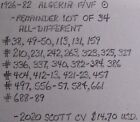 1926-82 ALGERIA F/VF ⊙
-REMAINDER LOT OF 34
ALL-DIFFERENT
#38, 49-50, 113, 131, 159
#210, 231, 242, 265, 323, 325, 327
#336, 337, 340, 372-384, 386
#404, 412-13, 421-23, 457
#497, 556-57, 584, 661
#688-89
-2020 SCOTT CV $14.70 USD